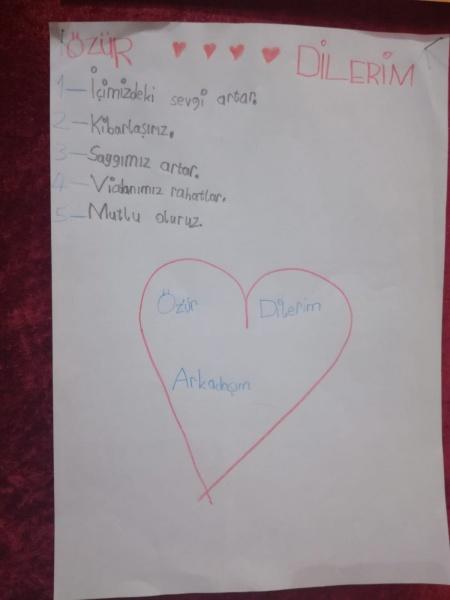 ÖZÜR DİLERİM
1- İçimizdeki sevgi artar.
2- Kibarlaşırız.
3- Saygımız artar.
4- Vicdanımız rahatlar.
5- Mutlu oluruz.
Özür Dilerim
Arkadaşım